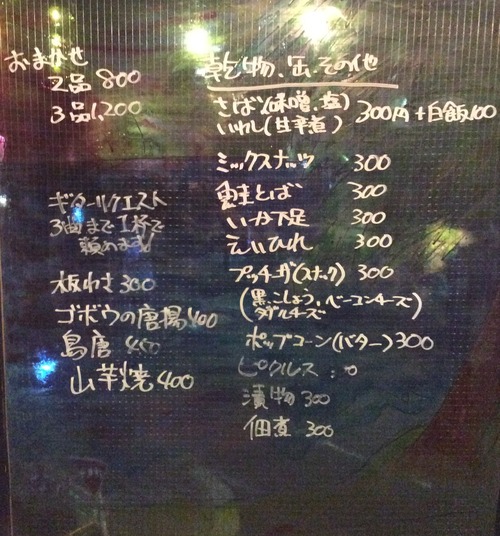 おまかせ
2品 800
3品 1,200
ギターリクエスト
3曲まで1杯で
頼めます!
板わさ 300
ゴボウの唐揚 400
鳥唐 450
山芋焼 400
乾物、缶、その他
さば(味噌、塩)
いわし(甘辛煮) 300円+白飯100
ミックスナッツ 300
鮭とば 300
いか下足 300
えいひれ 300
プッチーザ(スナック) 300
(黒こしょう、ベーコンチーズ
ダブルチーズ)
ポップコーン(バター) 300
ピクルス
漬物 300
佃煮 300